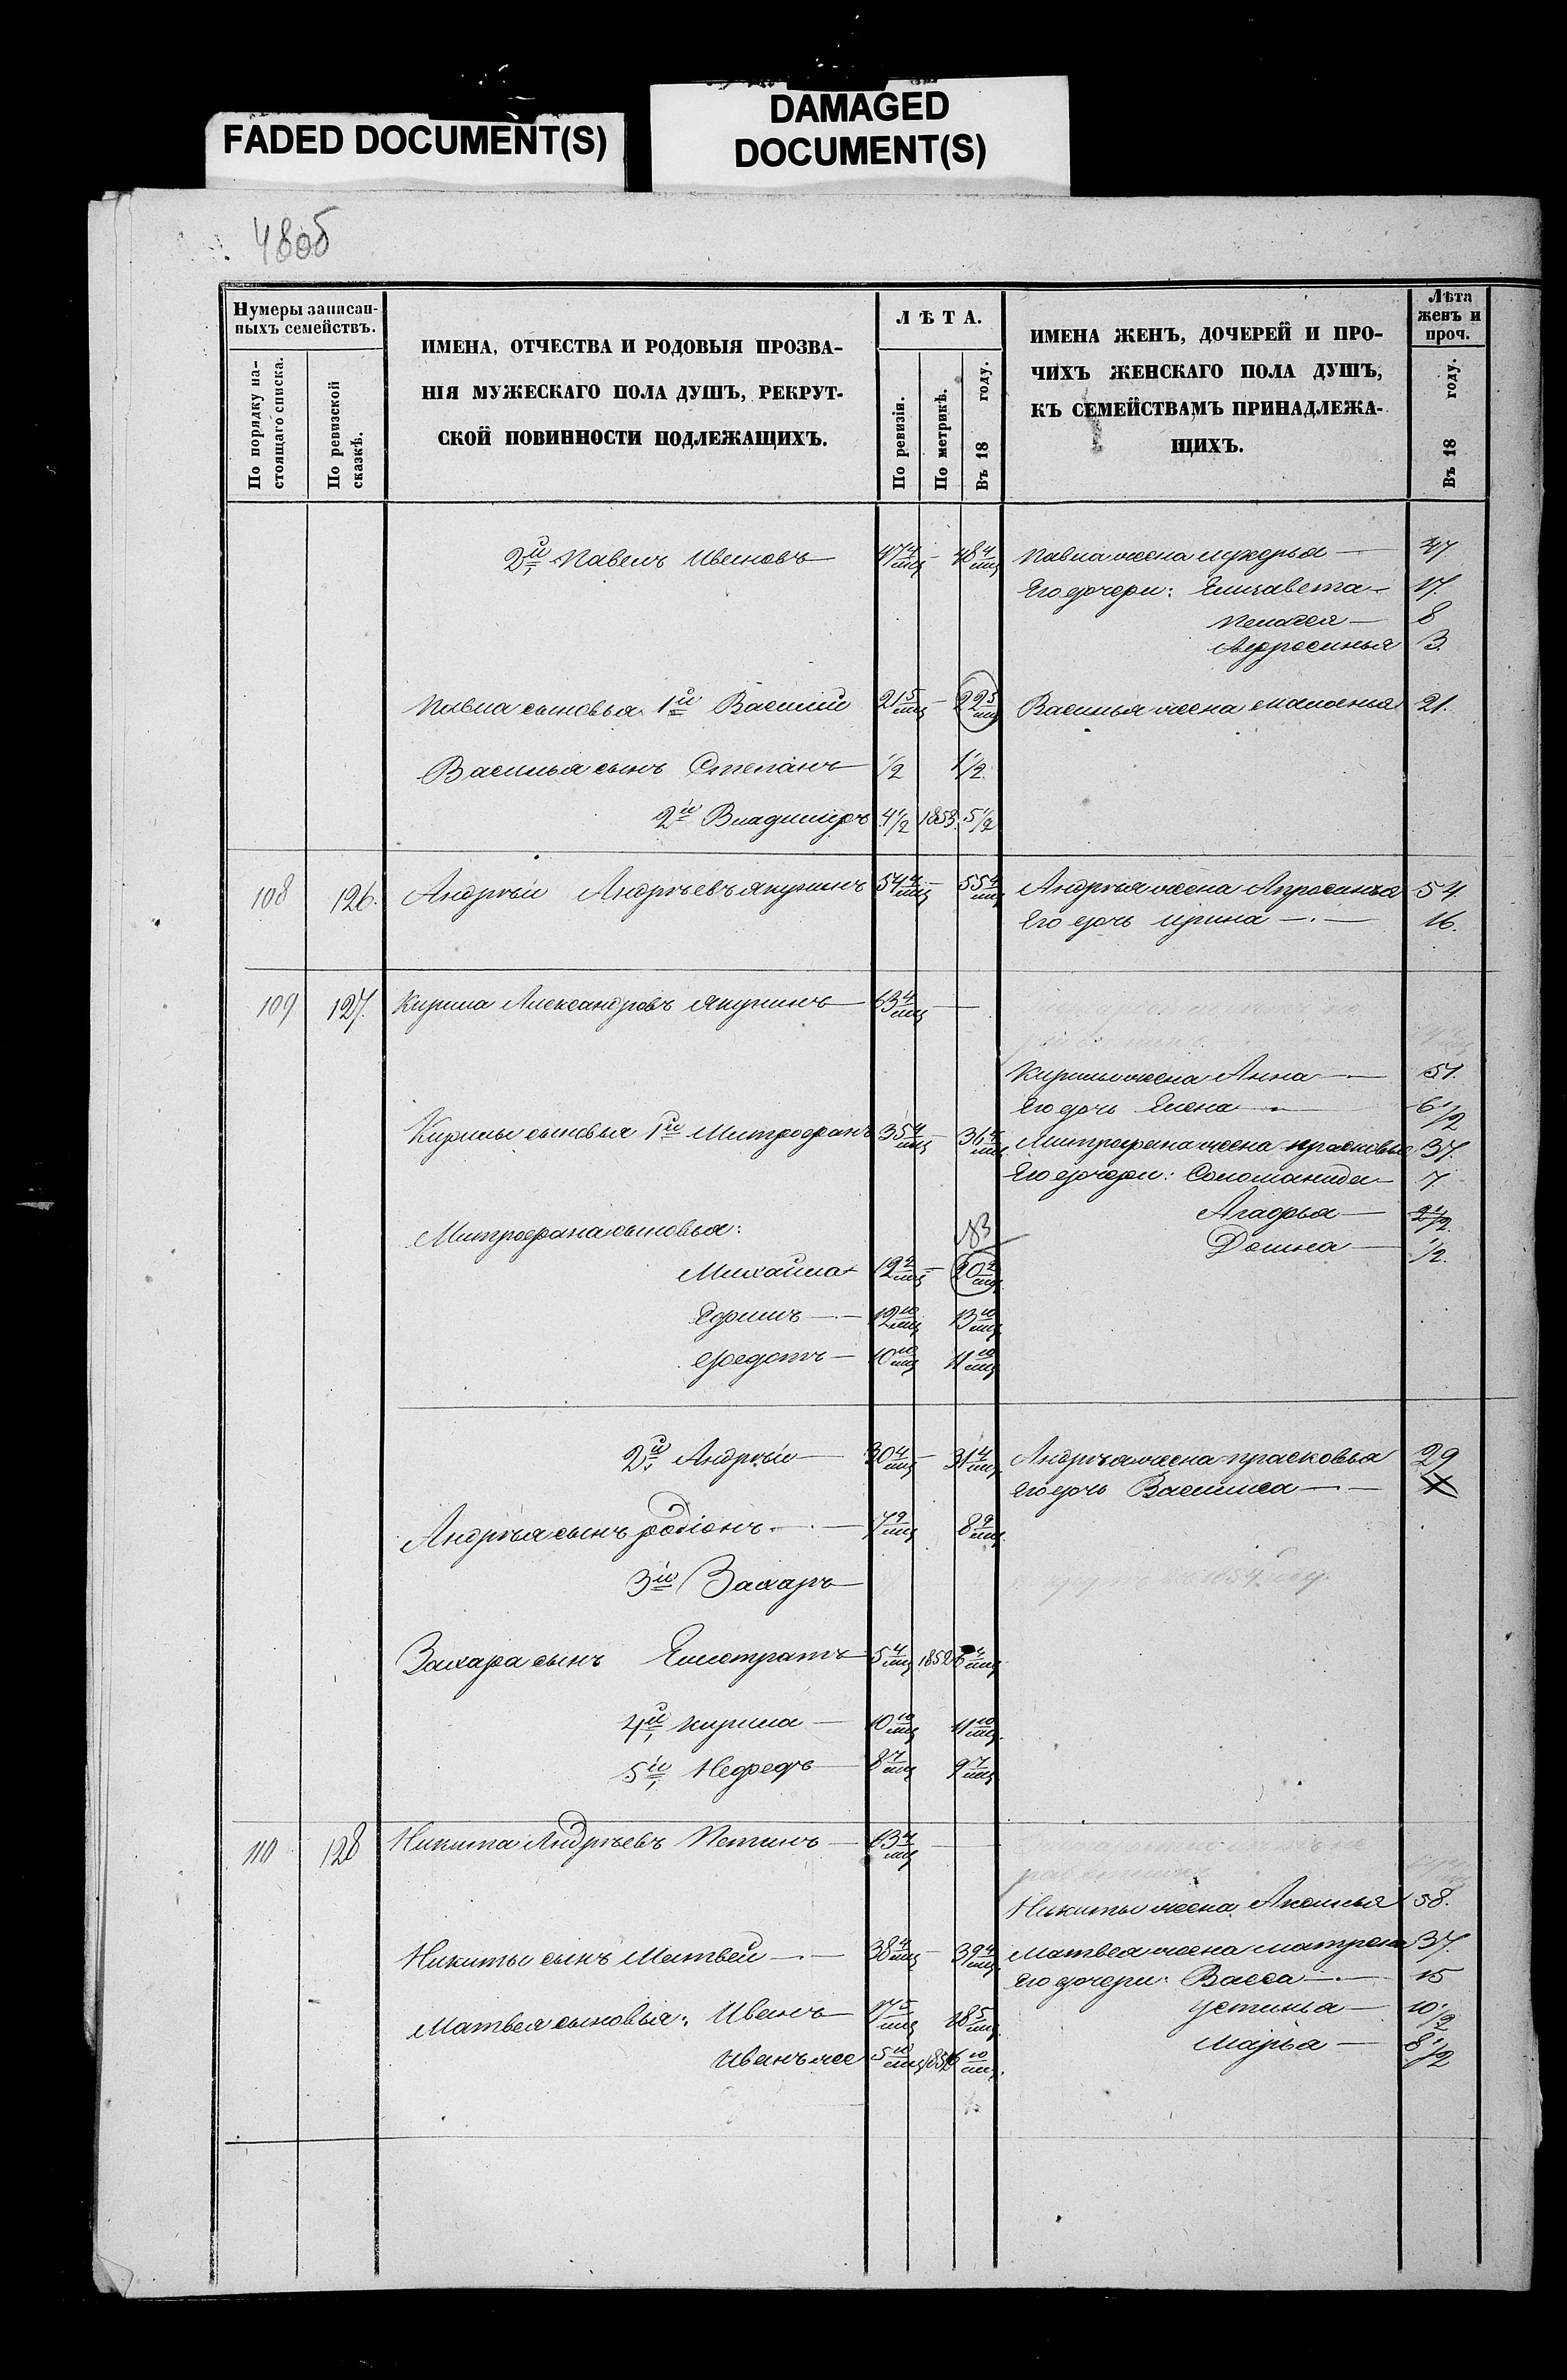 FADED DOCUMENT(S)
DAMAGED
DOCUMENT(S)
48об
Нумеры записан-
ныхъ семействъ.
По порядку на-
стоящаго списка.
По ревизской
сказкѣ.
ИМЕНА, ОТЧЕСТВА И РОДОВЫЯ ПРОЗВА-
НІЯ МУЖЕСКАГО ПОЛА ДУШЪ, РЕКРУТ-
СКОЙ ПОВИННОСТИ ПОДЛЕЖАЩИХЪ.
ЛѢТА.
По ревизіи.
По метрикѣ.
Въ 18 году.
ИМЕНА ЖЕНЪ, ДОЧЕРЕЙ И ПРО-
ЧИХЪ ЖЕНСКАГО ПОЛА ДУШЪ,
КЪ СЕМЕЙСТВАМЪ ПРИНАДЛЕЖА-
ЩИХЪ.
Лѣта
женъ и
проч.
Въ 18 году.
2й Павелъ Ивановъ — 47 4/мц — 48 4/мц Павла жена Лукерья — 47
Его дочери: Елизавета — 17.
Пелагея — 8
Афросинья 3.
Павла сыновья 1й Василий 21 5/мц — 22 5/мц Василья жена 21.
Василья сынъ Степанъ — 1/2 1 1/2
2й Владимиръ 4 1/2 1853. 5 1/2
108 126. Андрѣй Андрѣевъ Якунинъ 54 4/мц — 55 4/мц Андрѣя жена Апросинья 54.
Его дочь Ирина — . — 16.
109 127. Кирила Александровъ Якунинъ — 63 4/мц —
Кирилы жена Анна — 51.
Его дочь Елена — 6 1/2
Кирилы сыновья 1й Митрофанъ 35 4/мц — 36 4/мц Митрофана жена Прасковья 37.
Его дочери: Соломанида — 7.
Агафья — 2 1/2
Домна — 1/2.
Митрофана сыновья:
83
Михайла 19 4/мц — 20 4/мц
Ефимъ — . — 12 10/мц 13 10/мц
Федотъ — 10 10/мц 11 10/мц
2й Андрѣй — 30 4/мц — 31 4/мц Андрѣя жена Прасковья 29
Его дочь Василиса — . —
Андрѣя сынъ Родіонъ. — . — 7 9/мц 8 9/мц
3й Захаръ — 1854 году.
Захара сынъ Елистратъ 5 4/мц 1852 6 4/мц
4й Кирила — 10 10/мц 11 10/мц
5й Нефедъ — 8 7/мц 9 7/мц
110 128 Никита Андрѣевъ Петинъ — 63 4/мц —
Никиты жена 58.
Никиты сынъ Матвей — . — 38 4/мц — 39 4/мц Матвея жена Матрена 37.
Его дочери: Васса — . — 15
Матвея сыновья: Иванъ — 17 5/мц 18 5/мц Устинья — 10 1/2
Иванъ же 5 10/мц 6 10/мц Марья — 8 1/2